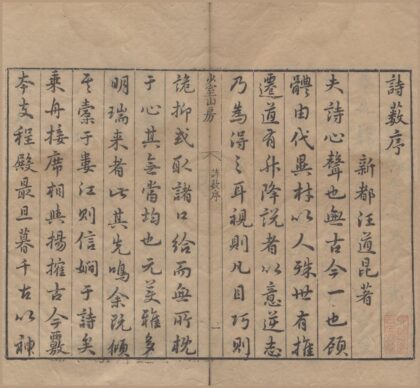 詩藪序
新都汪道昆著
夫詩心聲也無古今一也顧
體由代異材以人殊世有推
遷道有升降說者以意逆志
乃為得之耳視則凡目巧則
少室山房
詩藪序
一
詭抑或取諸口給而無所概
于心其無當均也元美雅多
明瑞来者此其先鳴余既傾
其橐于婁江則信嫺于詩矣
乘舟接席相與揚搉古今覈
本支程殿最旦暮千古以神